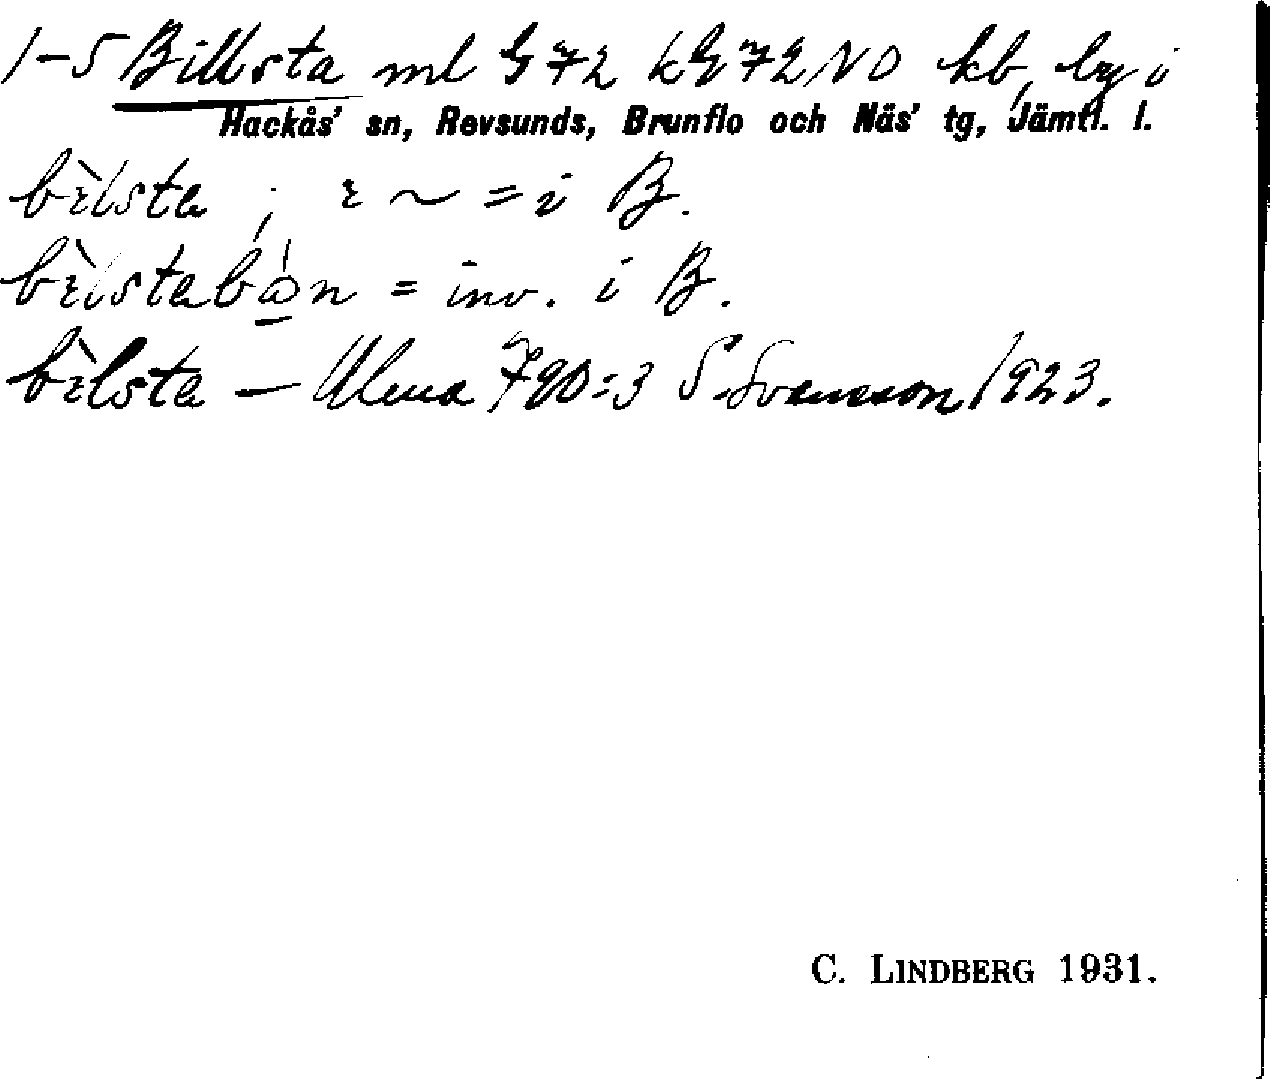 1-5 Billsta ml G 72 kG 72 NO kb, by i
Hackås' sn, Revsunds, Brunflo och Näs' tg, Jämtl. l.
bìlsta ; ɪ ~ = i B.
= inv. i B.
bìlsta — Ulma 790:3 S Svensson 1923.
C. LINDBERG 1931.